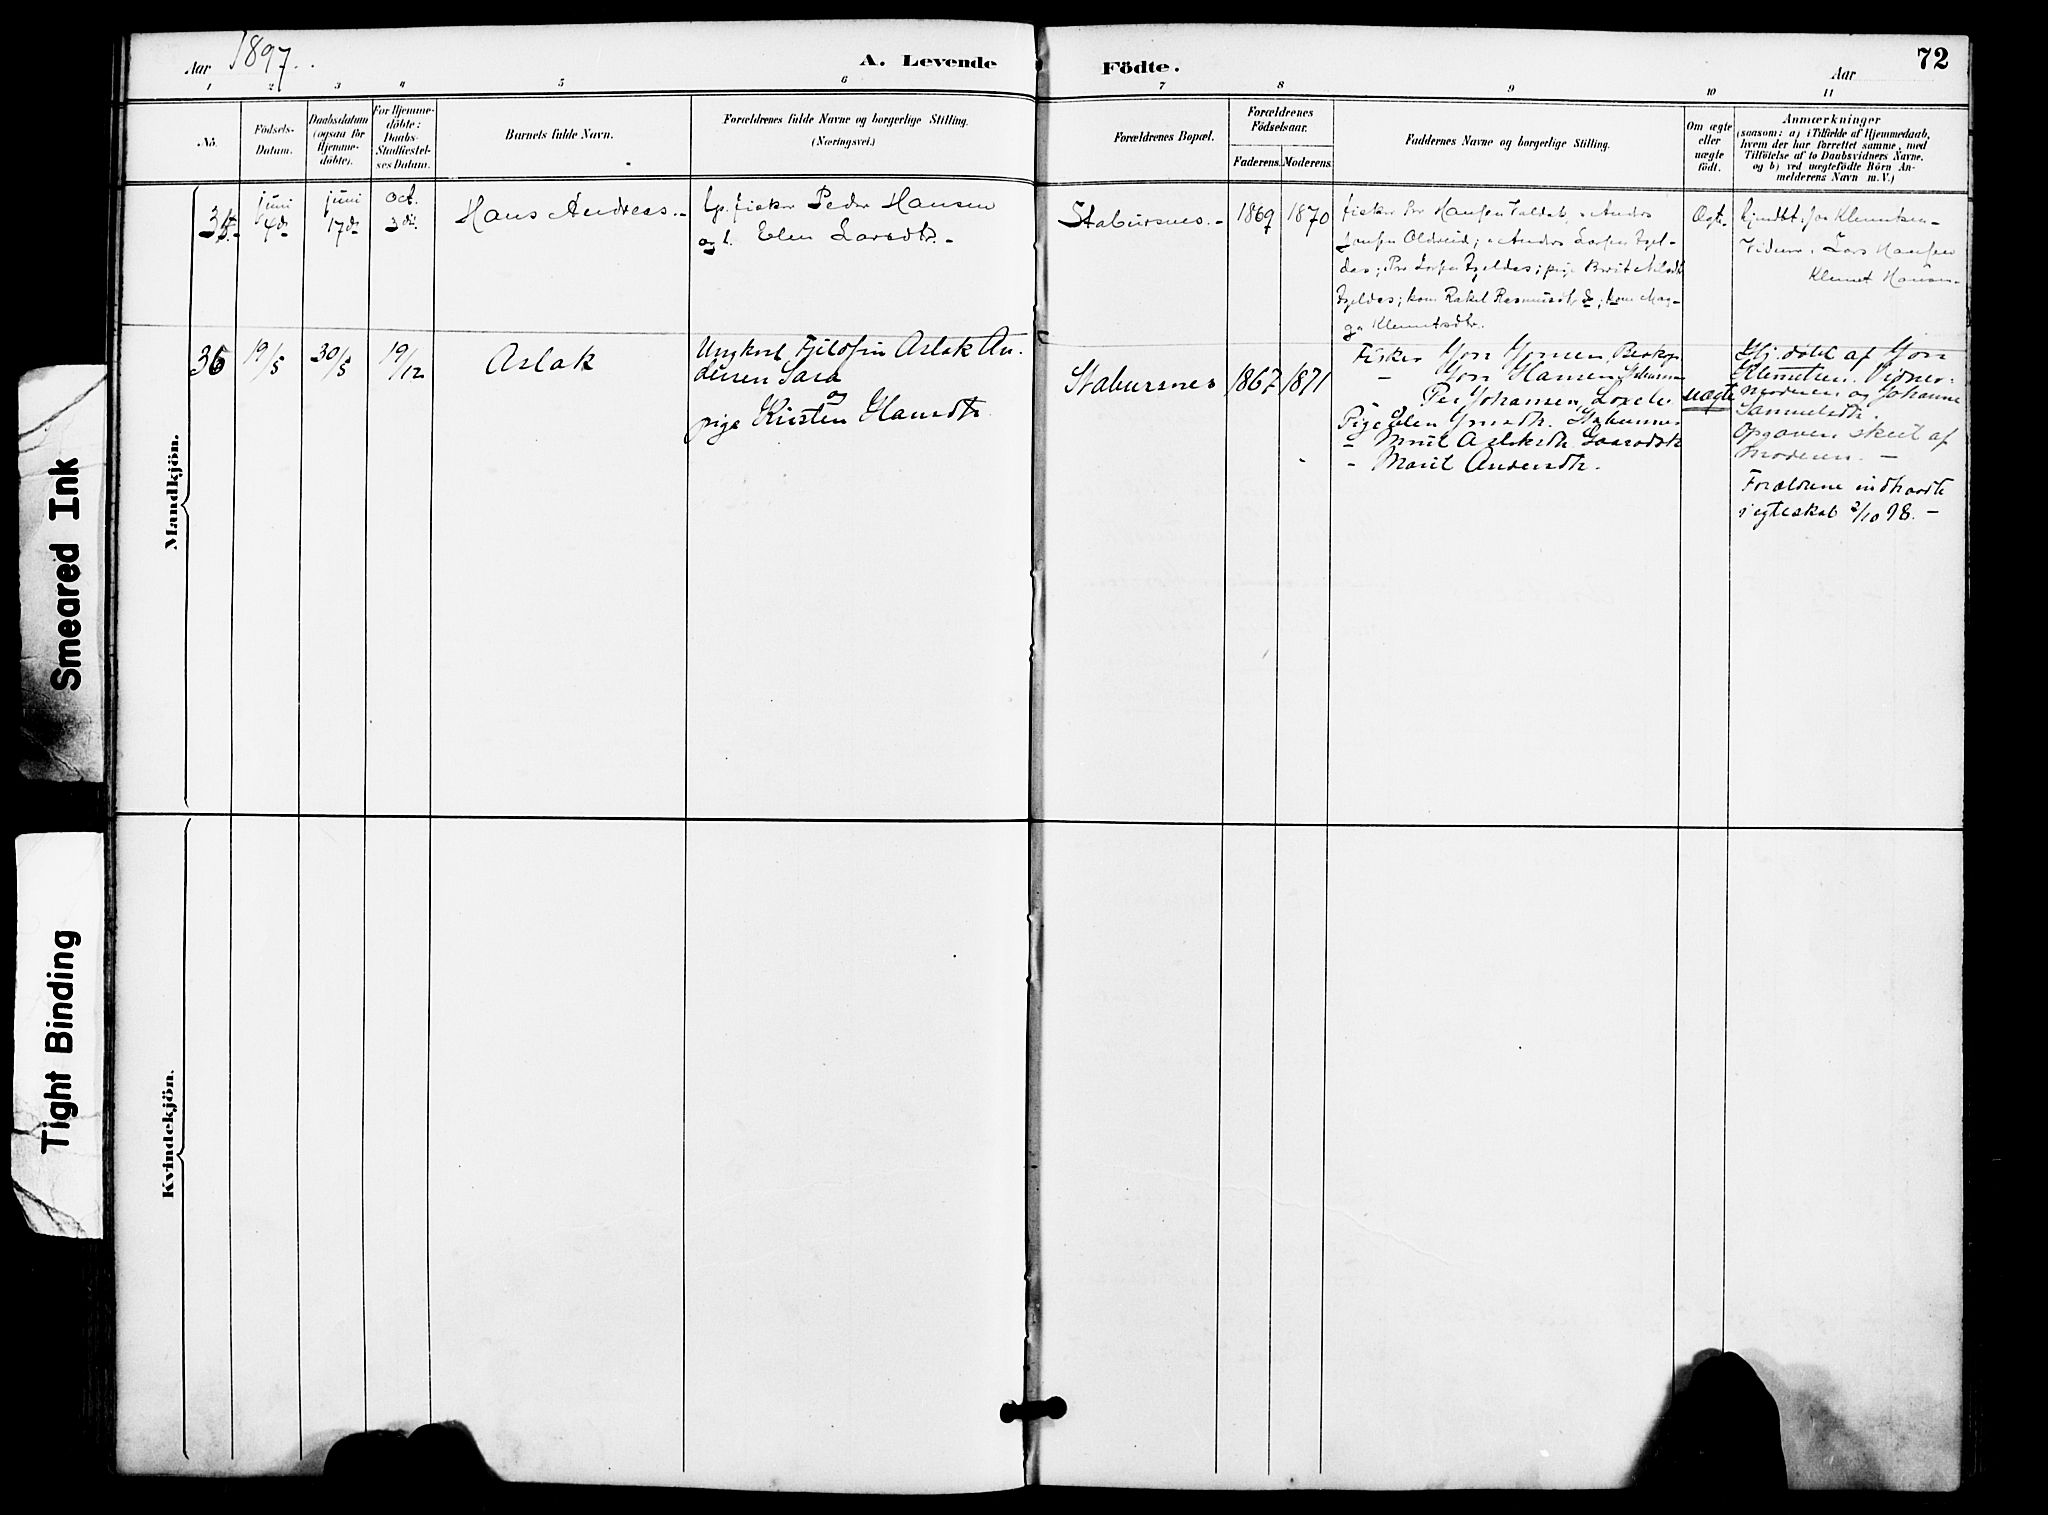 Aar 1897.
A. Levende Födte.
Aar
72
1 2 3 4 5 6 7 8 9 10 11
No.
Födsels-
Datum.
Daabsdatum
(ogsaa for
Hjemme-
döbte).
For Hjemme-
döbte:
Daabs-
Stadfæstel-
ses Datum.
Barnets fulde Navn.
Forældrenes fulde Navne og borgerlige Stilling.
(Næringsvei.)
Forældrenes Bopæl.
Forældrenes
Födselsaar.
Faderens. Moderens.
Faddernes Navne og borgerlige Stilling.
Om ægte
eller
uægte
födt.
Anmærkninger
(saasom: a) i Tilfælde af Hjemmedaab,
hvem der har forrettet samme, med
Tilföielse af to Daabsvidners Navne,
og b) ved uegtefödte Börn An-
melderens Navn m. V.)
Mandkjön.
35.
juni
4de
juni
17de
oct.
3die
Hans Andreas.
Lp. fisker Peder Hansen
og h. Elen Larsdtr.
Stabursnes.
1869
1870
fisker Per Hansen
Anders Larsen Igel-
das; Per Larsen Igeldas; pige Berit Nilsdtr
Igeldas; kone Rakel Rasmusdt, kone Mag-
ga Klemetsdtr.
Ægte
hjmdbt. for Klemetsen
Vidner: Lars Hansen
Klemet Hansen
36
19/5
30/5
19/12
Aslak
Ungkarl Fjeldfin Aslak An-
dersen Sara
og
pige Kirsten Hansdtr.
Stabursnes
1867
1871
Fisker Jon Jonsen,
- Jon Hansen,
Per Johansen,
Pige Elen Jonsdtr. Stabursnes
- Marit Aslaksdtr.
- Marit Andersdtr.
Uægte
Hj. døbt af Jon
Klemetsen. Vidner:
Moderen og Johanne
Samuelsdtr.
Opgaven skeet af
Moderen. -
Forældrene indtraadte
i egteskab 2/10 98. -
Kvindekjön.
Smeared Ink
Tight Binding